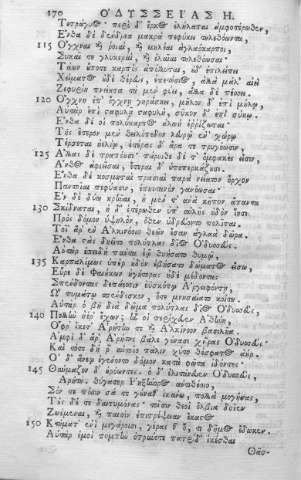 170 ὈΔΥΣΣΕΙΑΣ Η.
Τετράγυος· περὶ δ' ἕρκος ἐλήλαται ἀμφοτέρωθεν,
Ἔνθα δὲ δένδρεα μακρὰ πεφύκει τηλεθόωντα,
115 Ὄγχναι καὶ ῥοιαὶ, καὶ μηλέαι ἀγλαόκαρποι,
Συκαῖ τε γλυκεραὶ, καὶ ἐλαῖαι τηλεθόωσαι·
Τάων οὔποτε καρπὸς ἀπόλλυται, οὐδ' ἐπιλείπει
Χείματος οὐδὲ θέρευς, ἐπετήσιος, ἀλλὰ μάλ' αἰεὶ
Ζεφυρίη πνείουσα τὰ μὲν φύει, ἄλλα δὲ πέσσει.
120 Ὄγχνη ἐπ' ὄγχνῃ γηράσκει, μῆλον δ' ἐπὶ μήλῳ,
Αὐτὰρ ἐπὶ σταφυλῇ σταφυλὴ, σῦκον δ' ἐπὶ σύκῳ.
Ἔνθα δέ οἱ πολύκαρπος ἀλωὴ ἐῤῥίζωται·
Τῆς ἕτερον μὲν θειλόπεδον λευρῷ ἐνὶ χώρῳ
Τέρσεται ἠελίῳ, ἑτέρας δ' ἄρα τε τρυγόωσιν,
125 Ἄλλας δὲ τραπέουσι· πάροιθε δέ τ' ὄμφακές εἰσιν,
Ἄνθος ἀφιεῖσαι, ἕτεραι δ' ὑποπερκάζουσιν.
Ἔνθα δὲ κοσμηταὶ πρασιαὶ παρὰ νείατον ὄρχον
Παντοῖαι πεφύασιν, ἐπηετανὸν γανόωσαι·
Ἐν δὲ δύω κρῆναι, ἡ μέν τ' ἀνὰ κῆπον ἅπαντα
130 Σκίδναται, ἡ δ' ἑτέρωθεν ὑπ' αὐλῆς οὐδὸν ἵησι
Πρὸς δόμον ὑψηλὸν, ὅθεν ὑδρεύοντο πολῖται.
Τοῖ' ἄρ' ἐν Ἀλκινόοιο θεῶν ἔσαν ἀγλαὰ δῶρα.
Ἔνθα στὰς θηεῖτο πολύτλας δῖος Ὀδυσσεύς.
Αὐτὰρ ἐπειδὴ πάντα ἑῷ θηήσατο θυμῷ,
135 Καρπαλίμως ὑπὲρ οὐδὸν ἐβήσατο δώματος εἴσω,
Εὗρε δὲ Φαιήκων ἡγήτορας ἠδὲ μέδοντας
Σπένδοντας δεπάεσσιν εὐσκόπῳ Ἀργειφόντῃ,
Ὧι πυμάτῳ σπένδεσκον, ὅτε μνησαίατο κοίτου.
Αὐτὰρ ὁ βῆ διὰ δῶμα πολύτλας δῖος Ὀδυσσεὺς,
140 Πολλὴν ἠέρ' ἔχων, ἥν οἱ περίχευεν Ἀθήνη,
Ὄφρ' ἵκετ' Ἀρήτην τε καὶ Ἀλκίνοον βασιλῆα.
Ἀμφὶ δ' ἄρ' Ἀρήτης βάλε γούνασι χεῖρας Ὀδυσσεύς·
Καὶ τότε δή ῥ' αὐτοῖο πάλιν χύτο θέσφατος ἀήρ.
Οἱ δ' ἄνεῳ ἐγένοντο δόμον κάτα φῶτα ἰδόντες·
145 Θαύμαζον δ' ὁρόωντες· ὁ δ' ἐλλιτάνευεν Ὀδυσσεύς,
Ἀρήτη, θύγατερ Ῥηξήνορος ἀντιθέοιο,
Σόν τε πόσιν σά τε γούναθ' ἱκάνω, πολλὰ μογήσας,
Τούς δέ τε δαιτυμόνας· τοῖσιν θεοὶ ὄλβια δοῖεν
Ζωέμεναι, καὶ παισὶν ἐπιτρέψειεν ἕκαστος
150 Κτήματ' ἐνὶ μεγάροισι, γέρας θ' ὅ, τι δῆμος ἔδωκεν.
Αὐτὰρ ἐμοὶ πομπὴν ὀτρύνετε πατρίδ' ἱκέσθαι
Θᾶσ-